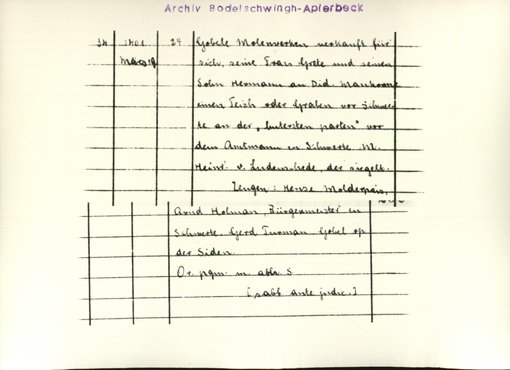 Archiv Bodelschwingh-Aplerbeck
34 1401 24 Gobele Molenverken verkauft für
März 9 sich, seine Frau Grete und seinen
Sohn Hermann an Did.
einen Teich oder Graben vor Schwer-
te an der „lutersten parten" vor
dem Amtmann in Schwerte M.
Heinr. v. Ludenschede, der siegelt.
Zeugen: Hense
Arnd Holman, Bürgermeister in
Schwerte, Gerd Turman, Gobel op
der Siden.
Or. pgm. m. abh. S.
[sabb. ante judic.]